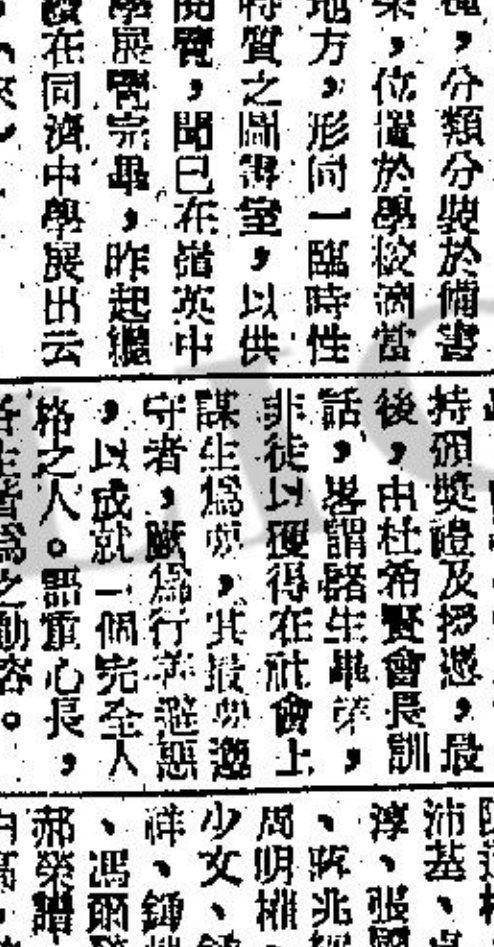 ，分類分裝於備書
架，位置於學校適當
地方，形同一臨時性
特質之圖書室，以供
閱覽，聞已在嶺英中
學展覽完畢，昨起繼
續在同濟中學展出云
持頒獎禮及授憑，最
後，由杜希賢會長訓
話，畧謂諸生畢業，
非徒以獲得在社會上
謀生爲 ，其最 遵
守者，厥爲行善避惡
，以成就一個完全人
格之人。語重心長，
生皆爲之動容。
沛基、
淳、張
、 兆
周明權、
少文、
祥、鍾
、馮爾
郝榮譜